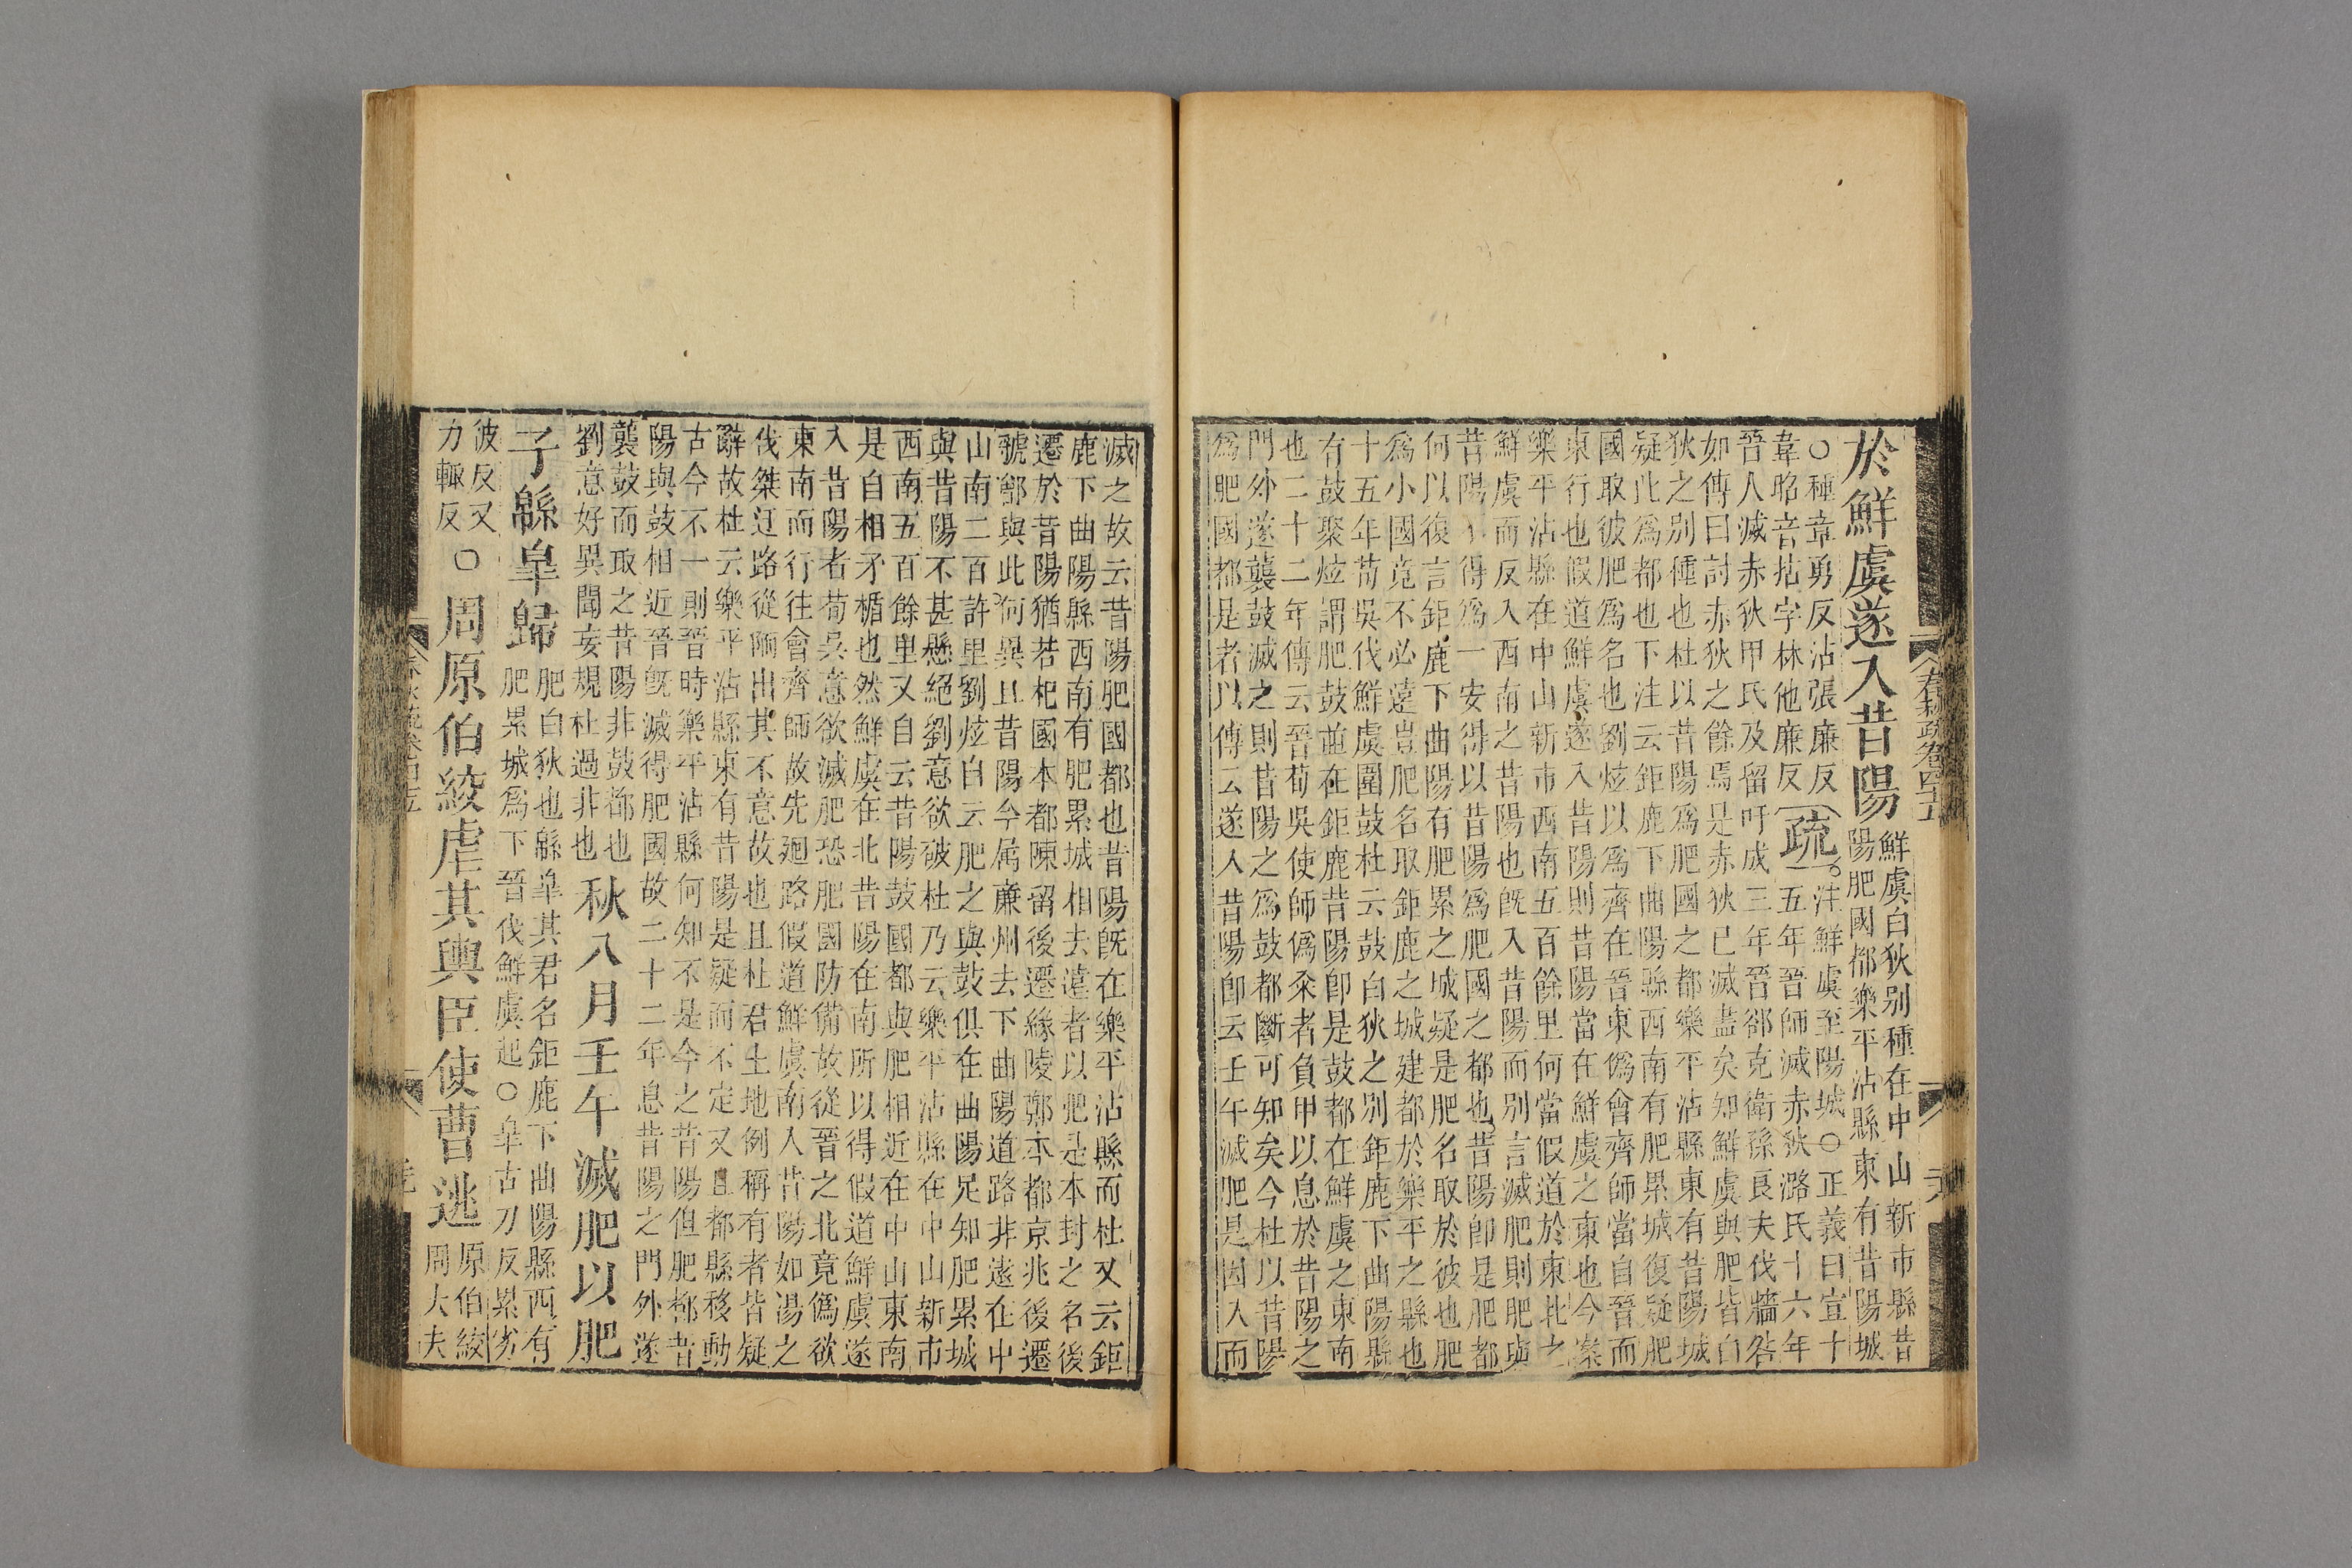 於鮮虞遂入昔陽鮮虞白狄別種在中山新市縣昔
陽肥國都樂平沾縣東有昔陽城
〇種章勇反沾張廉反
韋昭音拈字林他廉反
疏
注鮮虞至陽城〇正義曰宣十
五年晉師滅赤狄潞氏十六年
晉人滅赤狄甲氏及留吁成三年晉郤克衛孫良夫伐牆咎
如傳曰討赤狄之餘焉是赤狄已滅盡矣知鮮虞與肥皆白
狄之別種也杜以昔陽為肥國之都樂平沾縣東有昔陽城
疑此為都也下注云鉅鹿下曲陽縣西南有肥累城復疑肥
國取彼肥為名也劉炫以為齊在晉東偽會齊師當自晉而
東行也假道鮮虞遂入昔陽則昔陽當在鮮虞之東也今案
樂平沾縣在中山新市西南五百餘里何當假道於東北之
鮮虞而反入西南之昔陽也既入昔陽而別言滅肥則肥與
昔陽得為一安得以昔陽為肥國之都也昔陽即是肥都
何以復言鉅鹿下曲陽有肥累之城疑是肥名取於彼也肥
為小國竟不必遠豈肥名取鉅鹿之城建都於樂平之縣也
十五年荀吳伐鮮虞圍鼓杜云鼓白狄之別鉅鹿下曲陽縣
有鼓聚炫謂肥鼓並在鉅鹿昔陽即是鼓都在鮮虞之東南
也二十二年傳云晉荀吳使師偽籴者負甲以息於昔陽之
門外遂襲鼓滅之則昔陽之為鼓都斷可知矣今杜以昔陽
為肥國都是者以傳云遂入昔陽即云壬午滅肥是因入而
滅之故云昔陽肥國都也昔陽既在樂平沾縣而杜又云鉅
鹿下曲陽縣西南有肥累城相去遠者以肥是本封之名後
遷於昔陽猶若杞國本都陳留後遷緣陵鄭本都京兆後遷
虢鄶與此何異且昔陽今屬廉州去下曲陽道路非遠在中
山南二百許里劉炫自云肥之與鼓俱在曲陽足知肥累城
與昔陽不甚懸絕劉意欲破杜乃云樂平沾縣在中山新市
西南五百餘里又自云昔陽鼓國都與肥相近在中山東南
是自相矛楯也然鮮虞在北昔陽在南所以得假道鮮虞遂
入昔陽者荀吳意欲滅肥恐肥國防備故從晉之北竟偽欲
東南而行往會齊師故先廻路假道鮮虞南入昔陽如湯之
伐桀迂路從陑出其不意故也且杜君土地例稱有者皆疑
辭故杜云樂平沾縣東有昔陽是疑而不定又且都縣移動
古今不一則晉時樂平沾縣何知不是今之昔陽但肥都昔
陽與鼓相近晉既滅得肥國故二十二年息昔陽之門外遂
襲鼓而取之昔陽非鼓都也
劉意好異聞妄規杜過非也
秋八月壬午滅肥以肥
子緜皐歸肥白狄也緜皐其君名鉅鹿下曲陽縣西有
肥累城為下晉伐鮮虞起〇皐古刀反累劣
彼反又
力輒反
〇周原伯絞虐其輿臣使曹逃原伯絞
周大夫